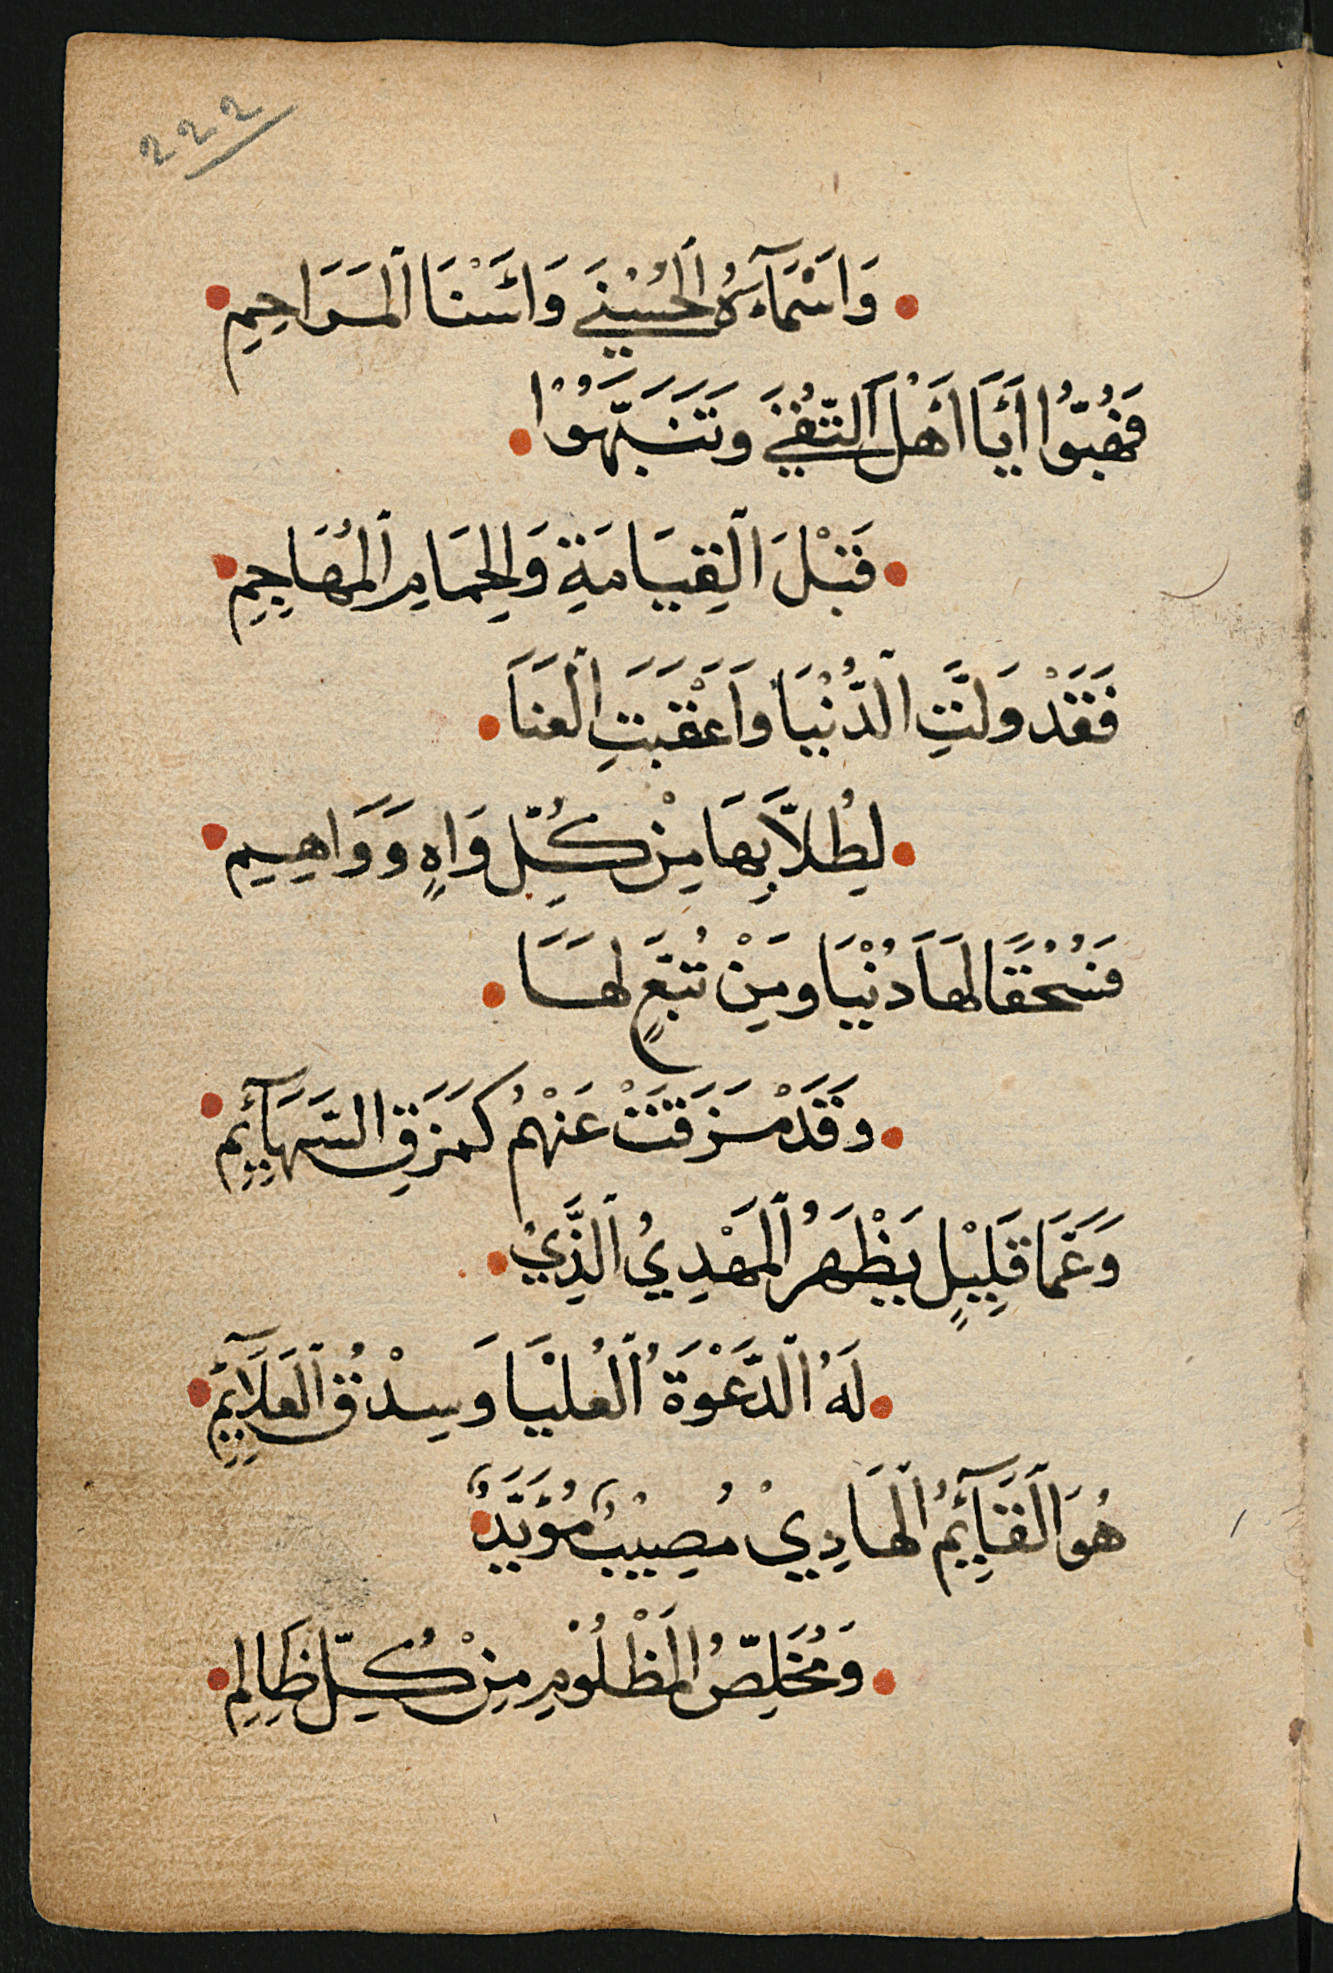 222
وَاسْمَآءَهُ الْحُسْنَي وَاسْنَا الْمَرَاحِمِ
فَهُبُّوْا أَيَا أَهْلَ التُّقَي وَتَنَبَّهُوْا
قَبْلَ الْقِيَامَةِ وَالْحِمَامِ الْمُهَاجِمِ
فَقَدْ وَلَّتِ الدُّنْيَا وَأَعْقَبَتِ الْعَنَا
لِطُلَّابِهَا مِنْ كُلِّ وَاهٍ وَوَاهِيِمِ
فَسُحْقًا لَهَا دُنْيَا وَمَنْ تُبَّعٍ لَهَا
وَقَدْ مَزَقَتْ عَنْهُمْ كَمَزَقِ السَّهَآئِمِ
وَعَمَا قَلِيْلٍ يَظْهَرُ الْمَهْدِيُ الَّذِيْ
لَهُ الدَّعْوَةُ الْعُلْيَا وَسِدْقُ الْعَلَآئِمِ
هُوَ الْقَآئِمُ الْهَادِيْ مُصِيْبٌ مُؤَيَّدٌ
وَمُخَلِّصُ الْمَظْلُوْمِ مِنْ كُلِّ ظَالِمِ